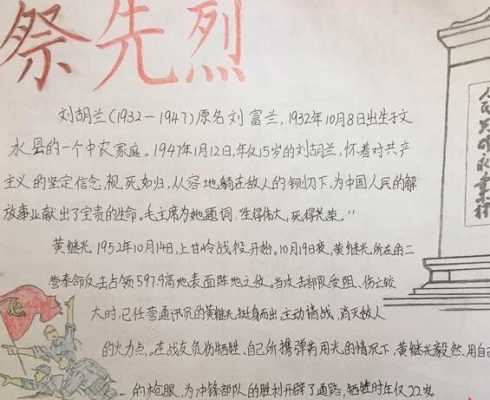 祭先烈
刘胡兰(1932-1947)原名刘富兰，1932年10月8日出生于文
水县的一个中农家庭。1947年1月12日，年仅15岁的刘胡兰，怀着对共产
主义的坚定信念，视死如归，从容地躺在敌人的铡刀下，为中国人民的解
放事业献出了宝贵的生命。毛主席为她题词，"生得伟大，死得光荣。"
黄继光1952年10月14日，上甘岭战役开始。10月19日夜，黄继光所在的二
营奉命反击占领597.9高地表面阵地之敌。当攻击部队受阻、伤亡较
大时，已任营通讯员的黄继光挺身而出，主动请战，消灭敌人
的火力点。在战友负伤牺牲，自己所携弹药用尽的情况下，黄继光毅然用自己
的枪眼，为冲锋部队的胜利开辟了通路，牺牲时年仅22岁。
人民英雄永垂不朽